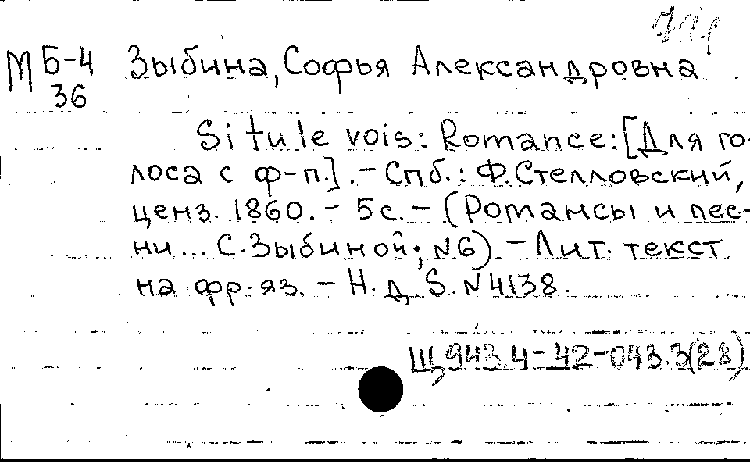 М Б-4 Зыбина, Софья Александровна
36
Si tu le vois: Romance: [Для го-
лоса с ф-п.]. - Спб.: Ф. Стелловский,
ценз. 1860. - 5 с. - (Романсы и пес-
ни... С. Зыбиной; №6) - Лит. текст
на фр. яз. - Н. д. S. №4138.
Щ943.4-42-043.3(28)